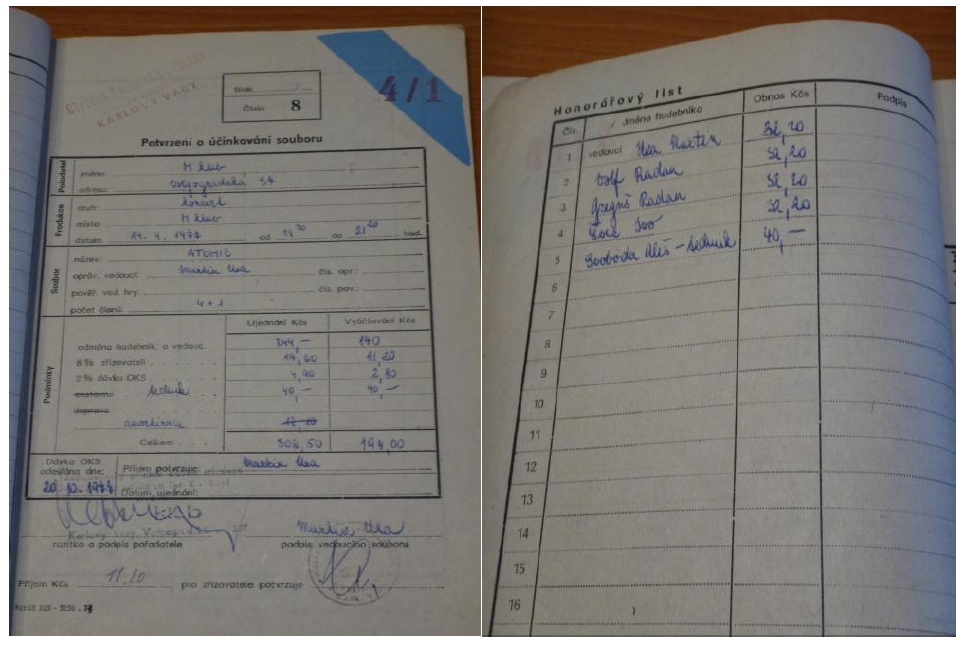 KARLOVY VARY
4/1
Číslo 8
Potvrzení o účinkování souboru
Pořadatel
jméno: M klub
adresa: Volgogradská 34
Produkce
druh: koncert
místo: M klub
datum od do 21 20 hod.
Soubor
název: ATOMIC
opráv. vedoucí: Martin čís. opr.:
pověř. ved. hry: čís. pov.:
počet členů: 4+1
Podmínky
Ujednání Kčs Vyúčtování Kčs
odměna hudebník. a vedouc. 244,- 140
8% zřizovateli 19,60 11,20
2% dávka OKS 4,90 2,80
technik 40,- 40,-
doprava
amortizace
Celkem 308,50 194,00
Dávka OKS
odeslána dne: Příjem potvrzuje: Martin
20. 10. 1977 Datum ujednání:
Martin
razítko a podpis pořadatele podpis vedoucího souboru
Příjem Kčs 11,20 pro zřizovatele potvrzuje
Honorářový list
Čís. Jméno hudebníka Obnos Kčs Podpis
1 vedoucí Martin 32,20
2 Volf Radan 32,20
3 Radan 32,20
4 Ivo 32,20
5 Svoboda Aleš - technik 40,-
6
7
8
9
10
11
12
13
14
15
16